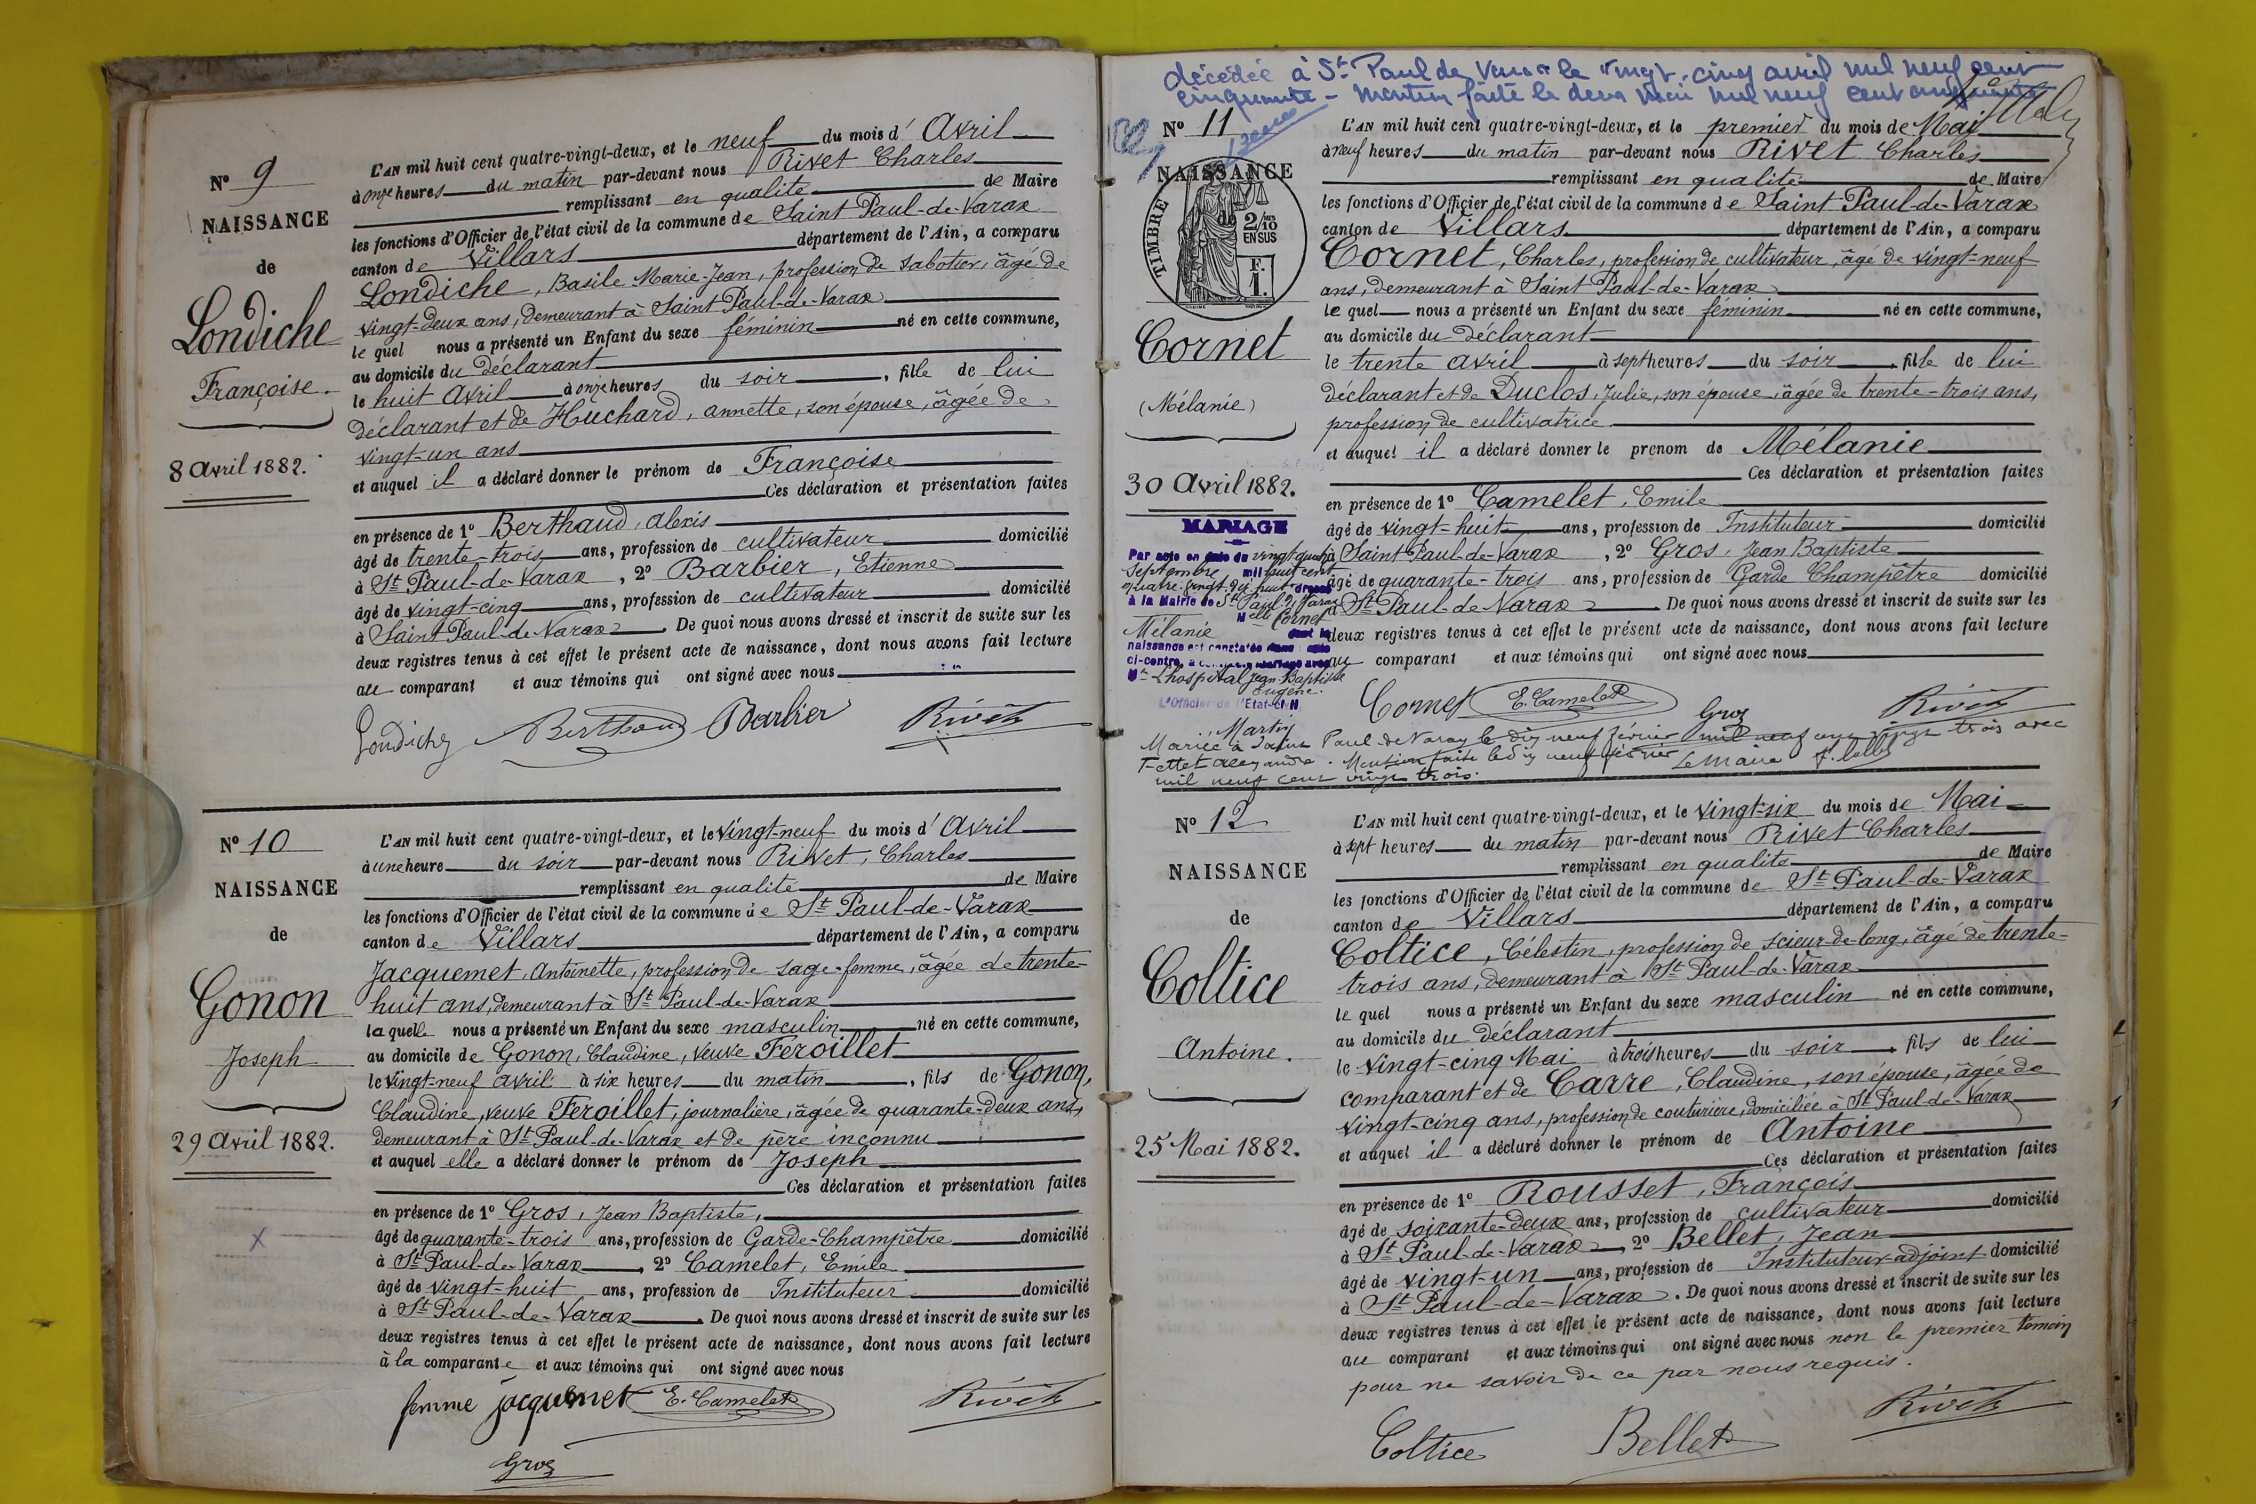 N° 9
NAISSANCE
de
Londiche
Françoise.
8 Avril 1882.
L'AN mil huit cent quatre-vingt-deux, et le neuf du mois d' Avril
à onze heures du matin par-devant nous Rivet Charles
remplissant en qualité de Maire
les fonctions d'Officier de l'état civil de la commune de Saint Paul-de-Varax
canton de Villars département de l'Ain, a comparu
Londiche, Basile Marie-Jean, profession de sabotier, âgé de
vingt-deux ans, demeurant à Saint Paul-de-Varax
le quel nous a présenté un Enfant du sexe féminin né en cette commune,
au domicile du déclarant
le huit Avril à onze heures du soir, fille de lui
déclarant et de Huchard, annette, son épouse, âgée de
vingt-un ans
et auquel il a déclaré donner le prénom de Françoise
Ces déclaration et présentation faites
en présence de 1° Berthaud, alexis
âgé de trente-trois ans, profession de cultivateur domicilié
à St Paul-de-Varax, 2° Barbier, Etienne
âgé de vingt-cinq ans, profession de cultivateur domicilié
à Saint Paul-de-Varax. De quoi nous avons dressé et inscrit de suite sur les
deux registres tenus à cet effet le présent acte de naissance, dont nous avons fait lecture
au comparant et aux témoins qui ont signé avec nous
Londiche Berthaud Barbier Rivet
N° 10
NAISSANCE
de
Gonon
Joseph
29 Avril 1882.
L'AN mil huit cent quatre-vingt-deux, et le vingt-neuf du mois d' Avril
à une heure du soir par-devant nous Rivet, Charles
remplissant en qualité de Maire
les fonctions d'Officier de l'état civil de la commune de St Paul-de-Varax
canton de Villars département de l'Ain, a comparu
Jacquemet, Antoinette, profession de sage-femme, âgée de trente-
huit ans, demeurant à St Paul-de-Varax
la quelle nous a présenté un Enfant du sexe masculin né en cette commune,
au domicile de Gonon, Claudine, veuve Feroillet
le vingt-neuf avril à six heures du matin, fils de Gonon,
Claudine, veuve Feroillet, journalière, âgée de quarante-deux ans,
demeurant à St Paul-de-Varax et de père inconnu
et auquel elle a déclaré donner le prénom de Joseph
Ces déclaration et présentation faites
en présence de 1° Gros, Jean Baptiste,
âgé de quarante-trois ans, profession de Garde-Champêtre domicilié
à St Paul-de-Varax, 2° Camelet, Emile
âgé de vingt-huit ans, profession de Instituteur domicilié
à St Paul-de-Varax. De quoi nous avons dressé et inscrit de suite sur les
deux registres tenus à cet effet le présent acte de naissance, dont nous avons fait lecture
à la comparante et aux témoins qui ont signé avec nous
femme jacquemet E. Camelet Rivet
Gros
décédée à St Paul de Varax le vingt-cinq avril mil neuf cent
cinquante - Mention faite le deux Mai mil neuf cent cinquante
N° 11
NAISSANCE
de
TIMBRE
2/10
EN SUS
F.
1.
Cornet
(Mélanie)
30 Avril 1882.
MARIAGE
Par acte en date du vingt quatre
Septembre mil huit cent
quatre-vingt-dix huit dressé
à la Mairie de St Paul de Varax
Melle Cornet
Mélanie dont la
naissance est constatée
ci-contre, a contracté mariage avec
Mr Lhospital Jean-Baptiste
Eugène.
L'Officier de l'Etat-civil
Martin
L'AN mil huit cent quatre-vingt-deux, et le premier du mois de Mai
à neuf heures du matin par-devant nous Rivet Charles
remplissant en qualité de Maire
les fonctions d'Officier de l'état civil de la commune de Saint-Paul-de-Varax
canton de Villars département de l'Ain, a comparu
Cornet, Charles, profession de cultivateur, âgé de vingt-neuf
ans, demeurant à Saint Paul-de-Varax
le quel nous a présenté un Enfant du sexe féminin né en cette commune,
au domicile du déclarant
le trente avril à sept heures du soir, fille de lui
déclarant et de Duclos, Julie, son épouse, âgée de trente-trois ans,
profession de cultivatrice
et auquel il a déclaré donner le prenom de Mélanie
Ces déclaration et présentation faites
en présence de 1° Camelet, Emile
âgé de vingt-huit ans, profession de Instituteur domicilié
à Saint Paul-de-Varax, 2° Gros, Jean Baptiste
âgé de quarante-trois ans, profession de Garde Champêtre domicilié
à St Paul-de-Varax. De quoi nous avons dressé et inscrit de suite sur les
deux registres tenus à cet effet le présent acte de naissance, dont nous avons fait lecture
au comparant et aux témoins qui ont signé avec nous
Cornet E. Camelet Gros Rivet
Mariée à Saint Paul-de-Varax le dix neuf février mil neuf cent vingt trois avec
Tettet Alexandre. Mention faite le dix neuf février Le Maire
mil neuf cent vingt trois.
N° 12
NAISSANCE
de
Coltice
Antoine.
25 Mai 1882.
L'AN mil huit cent quatre-vingt-deux, et le vingt-six du mois de Mai
à sept heures du matin par-devant nous Rivet Charles
remplissant en qualité de Maire
les fonctions d'Officier de l'état civil de la commune de St Paul-de-Varax
canton de Villars département de l'Ain, a comparu
Coltice, Célestin, profession de scieur-de-long, âgé de trente-
trois ans, demeurant à St Paul-de-Varax
le quel nous a présenté un Enfant du sexe masculin né en cette commune,
au domicile du déclarant
le vingt-cinq Mai à trois heures du soir, fils de lui
comparant et de Carre, Claudine, son épouse, âgée de
vingt-cinq ans, profession de couturière, domiciliée à St Paul-de-Varax
et auquel il a déclaré donner le prénom de Antoine
Ces déclaration et présentation faites
en présence de 1° Rousset, François
âgé de soixante-deux ans, profession de cultivateur domicilié
à St Paul-de-Varax, 2° Bellet, Jean
âgé de vingt-un ans, profession de Instituteur-adjoint domicilié
à St Paul-de-Varax. De quoi nous avons dressé et inscrit de suite sur les
deux registres tenus à cet effet le présent acte de naissance, dont nous avons fait lecture
au comparant et aux témoins qui ont signé avec nous non le premier témoin
pour ne savoir de ce par nous requis.
Coltice Bellet Rivet